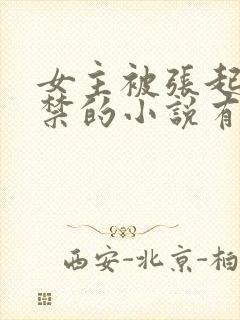 女主被張起
禁的小說有
西安-北京-柏